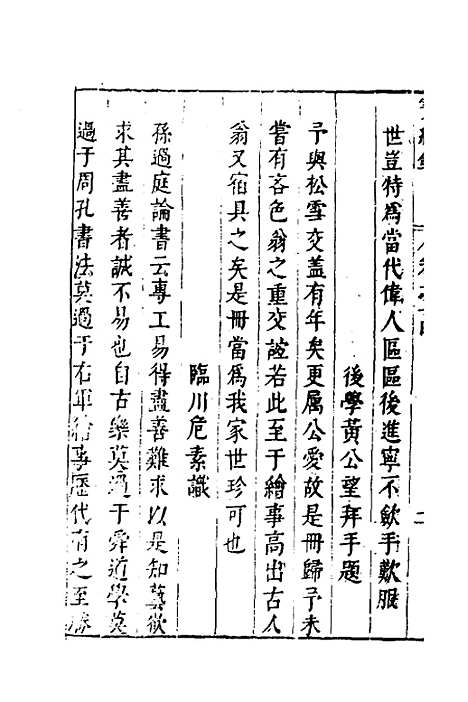 世豈特為當代偉人區區後進寧不斂手歎服
後學黃公望拜手題
予與松雪交盖有年矣更属公愛故是冊歸予未
嘗有吝色翁之重交誼若此至于繪事高出古人
翁又宿具之矣是冊當為我家世珍可也
臨川危素識
孫過庭論書云專工易得盡善難求以是知藝欲
求其盡善者誠不易也自古樂莫過于舜道學莫
過于周孔書法莫過于右軍繪事歷代有之至勝